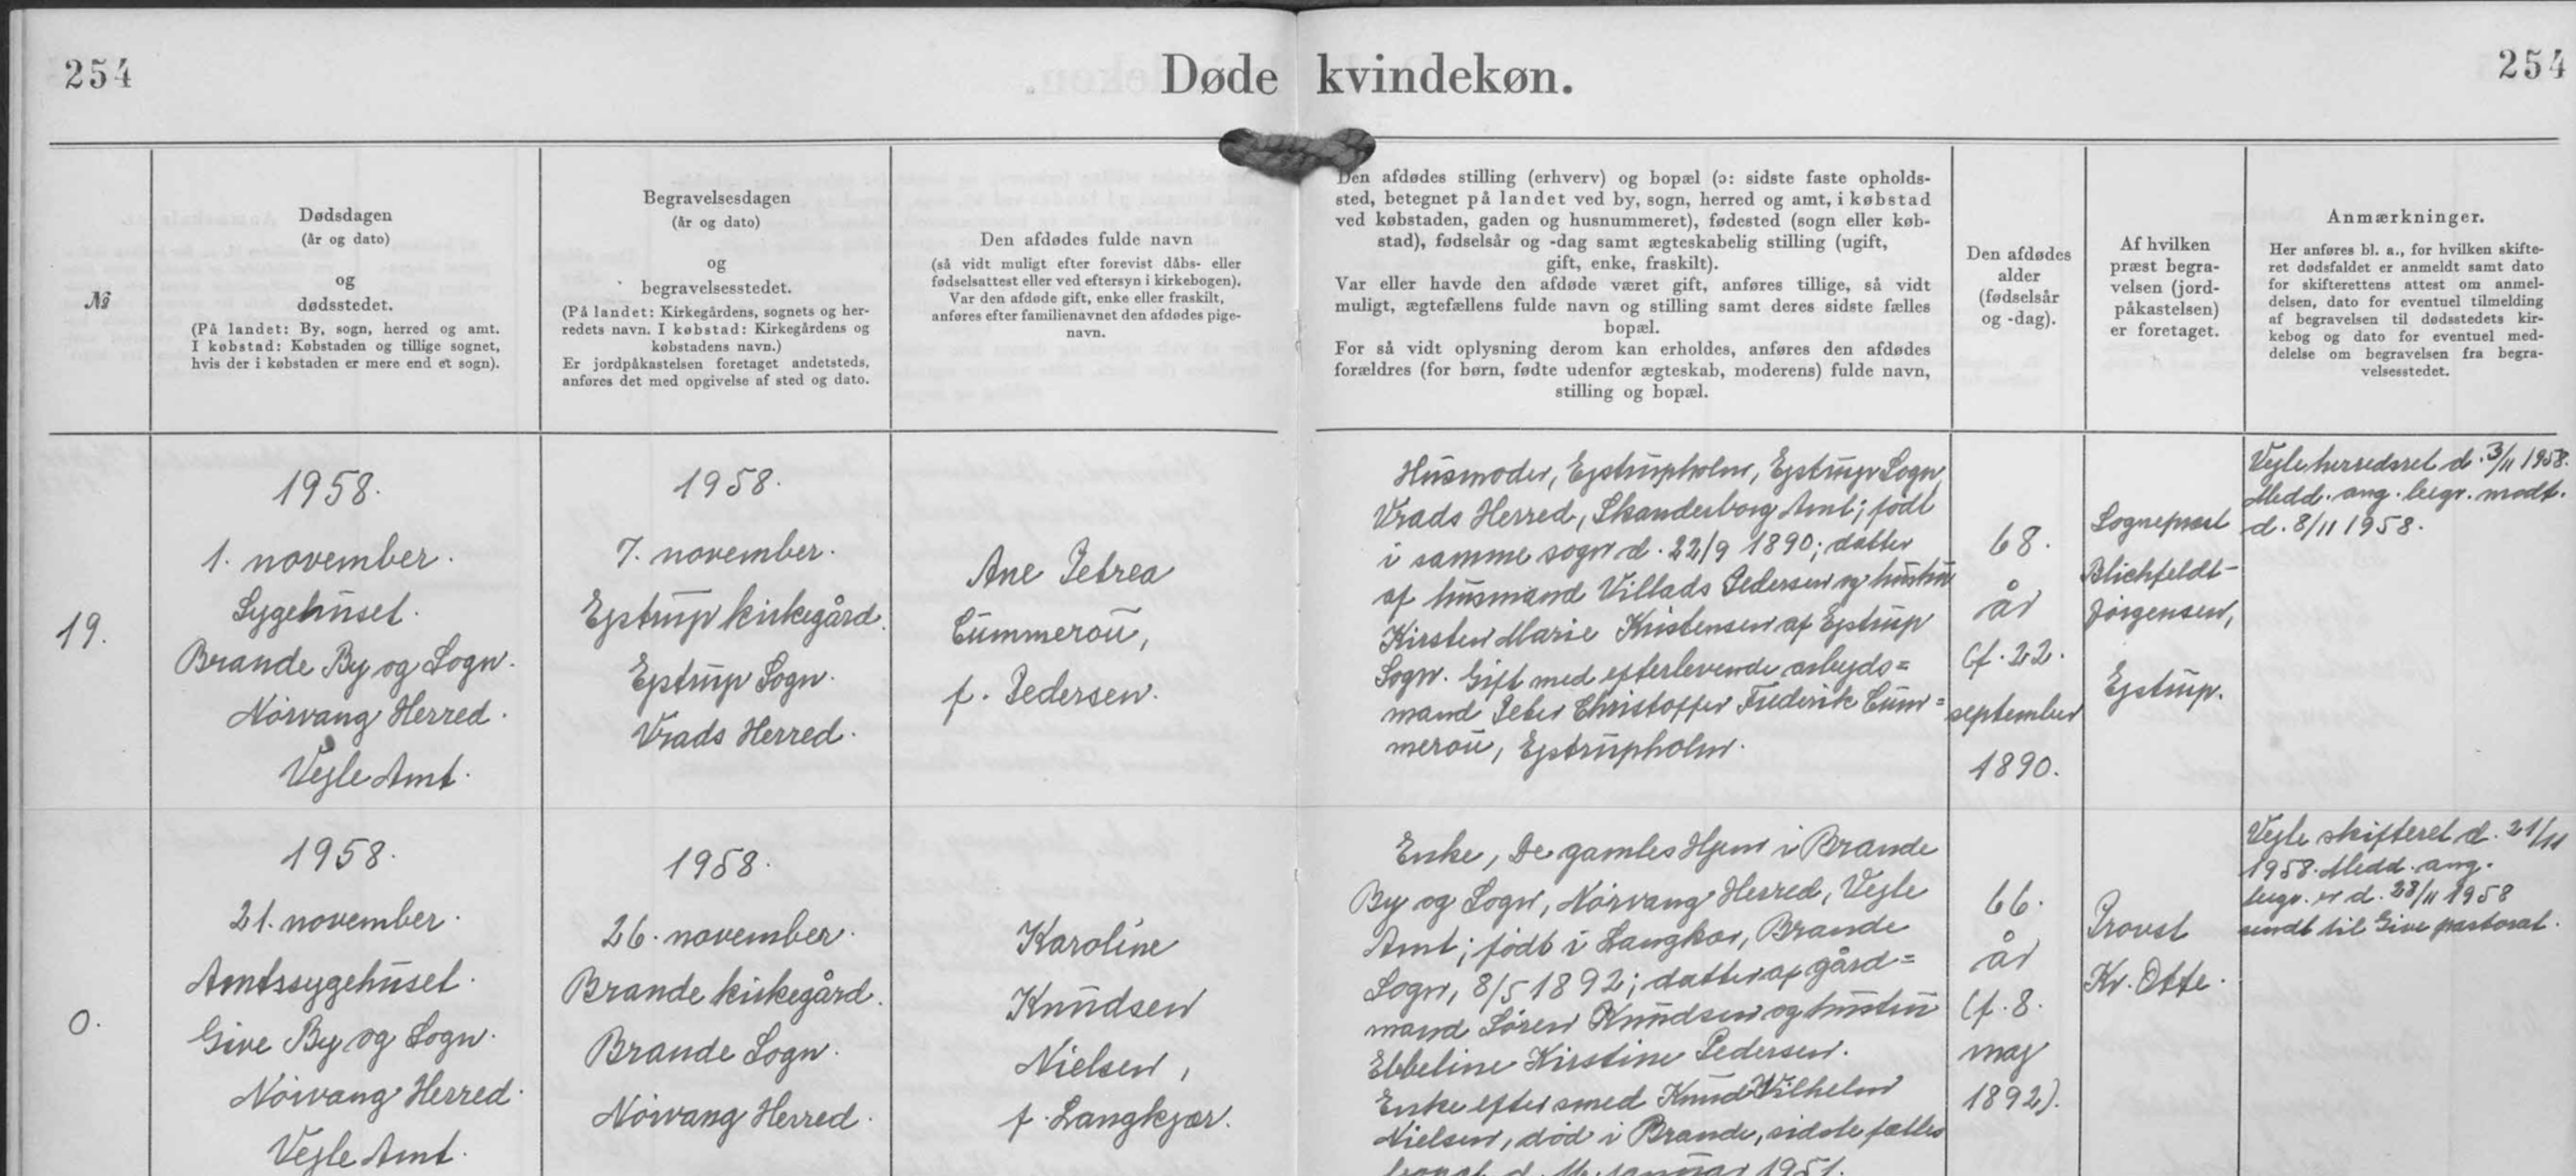 254
Døde kvindekøn.
254
№
Dødsdagen
(år og dato)
og
dødsstedet.
(På landet: By, sogn, herred og amt.
I købstad: Købstaden og tillige sognet,
hvis der i købstaden er mere end et sogn).
Begravelsesdagen
(år og dato)
og
begravelsesstedet.
(På landet: Kirkegårdens, sognets og her-
redets navn. I købstad: Kirkegårdens og
købstadens navn.)
Er jordpåkastelsen foretaget andetsteds,
anføres det med opgivelse af sted og dato.
Den afdødes fulde navn
(så vidt muligt efter forevist dåbs- eller
fødselsattest eller ved eftersyn i kirkebogen).
Var den afdøde gift, enke eller fraskilt,
anføres efter familienavnet den afdødes pige-
navn.
Den afdødes stilling (erhverv) og bopæl (ɔ: sidste faste opholds-
sted, betegnet på landet ved by, sogn, herred og amt, i købstad
ved købstaden, gaden og husnummeret), fødested (sogn eller køb-
stad), fødselsår og -dag samt ægteskabelig stilling (ugift,
gift, enke, fraskilt).
Var eller havde den afdøde været gift, anføres tillige, så vidt
muligt, ægtefællens fulde navn og stilling samt deres sidste fælles
bopæl.
For så vidt oplysning derom kan erholdes, anføres den afdødes
forældres (for børn, fødte udenfor ægteskab, moderens) fulde navn,
stilling og bopæl.
Den afdødes
alder
(fødselsår
og -dag).
Af hvilken
præst begra-
velsen (jord-
påkastelsen)
er foretaget.
Anmærkninger.
Her anføres bl. a., for hvilken skifte-
ret dødsfaldet er anmeldt samt dato
for skifterettens attest om anmel-
delsen, dato for eventuel tilmelding
af begravelsen til dødsstedets kir-
kebog og dato for eventuel med-
delelse om begravelsen fra begra-
velsesstedet.
19.
1958.
1. november.
Sygehuset.
Brande By og Sogn.
Nørvang Herred.
Vejle Amt.
1958.
7. november.
Ejstrup kirkegård.
Ejstrup Sogn.
Vrads Herred.
Ane Petrea
Cummerou,
f. Pedersen.
Husmoder, Ejstrupholm, Ejstrup Sogn,
Vrads Herred, Skanderborg Amt; født
i samme sogn d. 22/9 1890; datter
af husmand Villads Pedersen og hustru
Kirsten Marie Kristensen af Ejstrup
Sogn. Gift med efterlevende arbejds=
mand Peter Christoffer Frederik Cum=
merou, Ejstrupholm.
68.
år
(f. 22.
september
1890.
Sognepræst
Blichfeldt-
Jørgensen,
Ejstrup.
Vejle herredsret d. 3/11 1958.
Medd. ang. begr. modt.
d. 8/11 1958.
0.
1958.
21. november.
Amtssygehuset.
Give By og Sogn.
Nørvang Herred.
Vejle Amt.
1958.
26. november.
Brande kirkegård.
Brande Sogn.
Nørvang Herred.
Karoline
Knudsen
Nielsen,
f. Langkjær.
Enke, De gamles Hjem i Brande
By og Sogn, Nørvang Herred, Vejle
Amt; født i Langkær, Brande
Sogn, 8/5 1892; datter af gård=
mand Søren Knudsen og hustru
Ebbeline Kirstine Pedersen.
Enke efter smed Knud Vilhelm
Nielsen, død i Brande, sidste fælles
bopæl d. januar 1951.
66.
år
(f. 8.
maj
1892).
Provst
Kr. Otte.
Vejle skifteret d. 21/11
1958. Medd. ang.
begr. er d. 28/11 1958
sendt til Give pastorat.